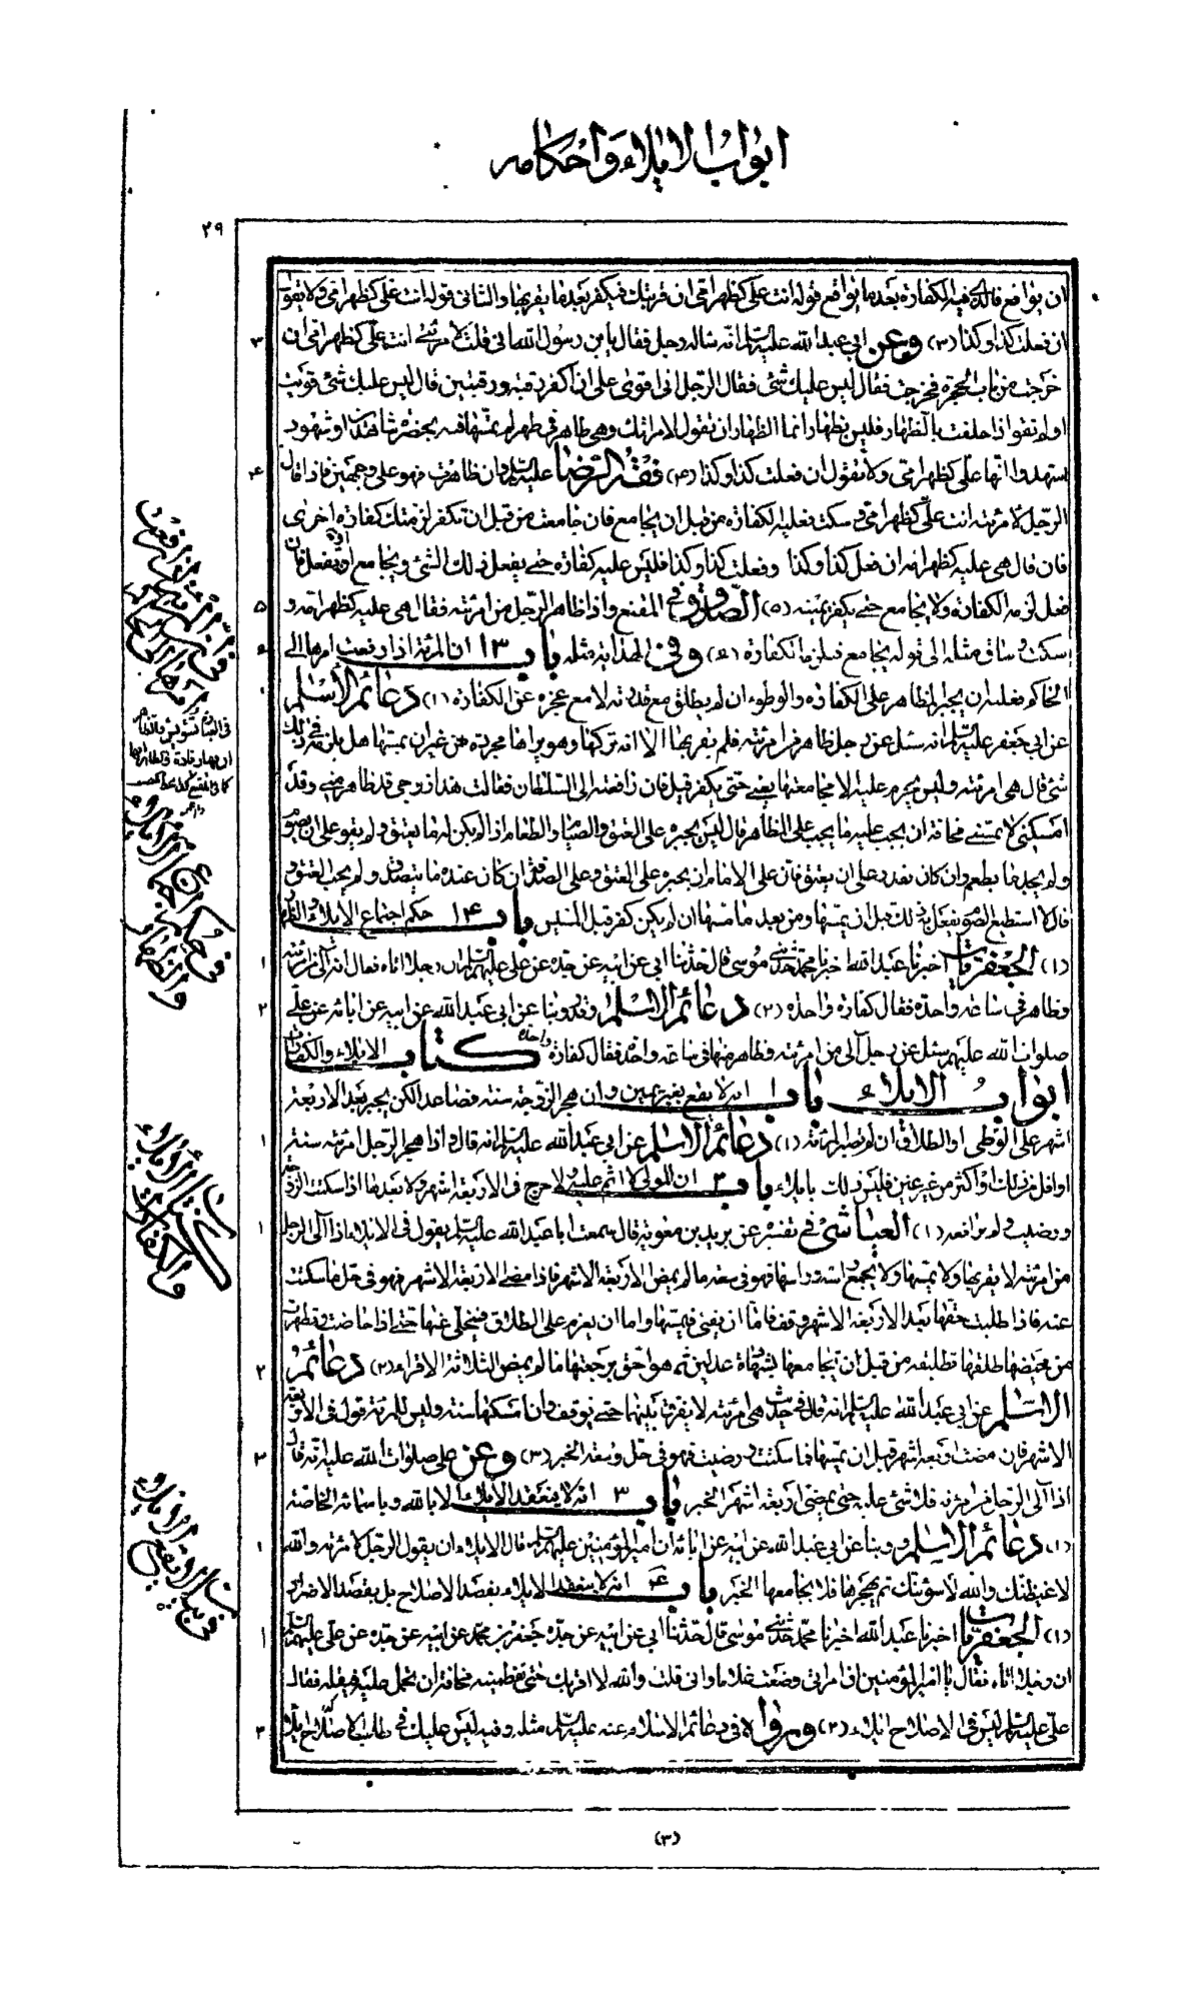 ابواب الايلاء واحكامه
٢٩
ان يواقع فالذي فيه الكفارة بعد ما يواقع قوله انت علي كظهر امي ان قربتك فيكفر بعد ما يقربها والثاني قوله انت علي كظهر امي ولا يقول
ان فعلت كذا وكذا (٣) وعن ابي عبد الله عليه السلم انه سأله رجل فقال يا بن رسول الله اني قلت لامرئتي انت علي كظهر امي ان
خرجت من باب الحجرة فخرجت فقال ليس عليك شئ فقال الرجل اني اقوى على ان اكفر رقبة ورقبتين قال ليس عليك شئ قويت
او لم تقو اذا حلفت بالظهار فليس بظهار انما الظهار ان تقول لامرئتك وهي طاهر في طهر لم تمسها فيه بحضرة شاهدين او شهود
اشهدوا انها علي كظهر امي ولا تقول ان فعلت كذا وكذا (٤) فقه الرضا عليه السلم وان ظاهرت فهو على وجهين فاذا قال
الرجل لامرئته انت علي كظهر امي وسكت فعليه الكفارة من قبل ان يجامع فان جامعت من قبل ان تكفر لزمتك كفارة اخرى
فان قال هي عليه كظهر امه ان فعل كذا وكذا وفعلت كذا وكذا فليس عليه كفارة حتى يفعل ذلك الشئ ويجامع او يفعل فان
فعل لزمه الكفارة ولا يجامع حتى يكفر يمينه (٥) الصدوق في المقنع واذا ظاهر الرجل من امرئته فقال هي عليه كظهر امه و
سكت وساق مثله الى قوله يجامع فيلزمه الكفارة (٦) وفي الهداية مثله باب ١٣ ان المرئة اذا رفعت امرها الى
الحاكم فعليه ان يجبر المظاهر على الكفارة والوطوء ان لم يطلق مع قدرته لا مع عجزه عن الكفارة (١) دعائم الاسلم
عن ابي جعفر عليه السلم انه سئل عن رجل ظاهر من امرئته فلم يقربها الا انه تركها وهو يراها مجردة من غير ان يمسها هل يلزمه في ذلك
شئ قال هي امرئته وليس يحرم عليه الا مجامعتها يعني حتى يكفر قيل فان رافعته الى السلطان فقالت هذا زوجي قد ظاهر مني وقد
امسكني لا يمسني مخافة ان يجب عليه ما يجب على المظاهر قال ليس يجبره على العتق والصيام والطعام اذا لم يكن له ما يعتق ولم يقو على ان يصوم
ولم يجد ما يطعم وان كان يقدر على ان يعتق فان على الامام ان يجبره على العتق وعلى الصدقة ان كان عنده ما يتصدق ولم يجب العتق و
قال لا استطيع الصوم يفعل به ذلك قبل ان يمسها ومن بعد ما مسها ان لم يكن كفر قبل المسيس باب ١٤ حكم اجتماع الايلاء والظهار
(١) الجعفريات اخبرنا عبد الله اخبرنا محمد حدثني موسى قال حدثنا ابي عن ابيه عن جده عن علي عليهم السلم ان رجلا اتاه فقال انه آلى من امرئته
وظاهر في ساعة واحدة فقال كفارة واحدة (٢) دعائم الاسلم وقد روينا عن ابي عبد الله عن ابيه عن ابائه عن علي
صلوات الله عليهم سئل عن رجل آلى من امرئته وظاهر منها في ساعة واحدة فقال كفارة واحدة كتاب الايلاء والكفارات
ابواب الايلاء باب ١ انه لا يقع بغير يمين وان هجر الزوجة سنة فصاعدا لكن يجبر بعد الاربعة
اشهر على الوطي او الطلاق ان لم تصبر المرئة (١) دعائم الاسلم عن ابي عبد الله عليه السلم انه قال واذا هجر الرجل امرئته سنة
او اقل من ذلك او اكثر من غير يمين فليس ذلك بايلاء باب ٢ ان المولى لا اثم عليه ولا حرج في الاربعة اشهر ولا بعدها اذا سكتت الزوجة
ورضيت ولم ترافعه (١) العياشي في تفسيره عن بريد بن معوية قال سمعت ابا عبد الله عليه السلم يقول في الايلاء اذا آلى الرجل
من امرئته لا يقربها ولا يمسها ولا يجمع رأسه ورأسها فهو في سعة ما لم يمض الاربعة الاشهر فاذا مضى الاربعة الاشهر فهو في حل ما سكتت
عنه فاذا طلبت حقها بعد الاربعة الاشهر وقف فاما ان يفئ فيمسها واما ان يعزم على الطلاق فيخلي عنها حتى اذا حاضت وتطهرت
من محيضها طلقها تطليقة من قبل ان يجامعها بشهادة عدلين ثم هو احق برجعتها ما لم يمض الثلاثة الاقراء (٢) دعائم
الاسلم عن ابي عبد الله عليه السلم انه قال في حديث هي امرئته لا يفرق بينهما حتى يوقف وان امسكها سنة وليس للمرئة قول في الاربعة
الاشهر فان مضت اربعة اشهر قبل ان يمسها فما سكتت ورضيت فهو في حل وسعة الخبر (٣) وعن علي صلوات الله عليه انه قال
اذا آلى الرجل من امرئته فلا شئ عليه حتى يمضي اربعة اشهر الخبر باب ٣ انه لا ينعقد الايلاء الا بالله وباسمائه الخاصة
(١) دعائم الاسلم روينا عن ابي عبد الله عن ابيه عن ابائه ان امير المؤمنين عليهم السلم قال الايلاء ان يقول الرجل لامرئته والله
لاغيظنك والله لاسوئنك ثم يهجرها فلا يجامعها الخبر باب ٤ انه لا ينعقد الايلاء بقصد الاصلاح بل بقصد الاضرار
(١) الجعفريات اخبرنا عبد الله اخبرنا محمد حدثني موسى قال حدثنا ابي عن ابيه عن جده جعفر بن محمد عن ابيه عن جده عن علي عليهم السلم
ان رجلا اتاه فقال يا امير المؤمنين ان امراتي وضعت غلاما واني قلت والله لا اقربك حتى تفطميه مخافة ان تحمل عليه فيقتله فقال
علي عليه السلم ليس في الاصلاح ايلاء (٢) ورواه في دعائم الاسلام عنه عليه السلم مثله وفيه ليس عليك في طلب الاصلاح ايلاء
في حكم اجتماع الايلاء
والظهار
كتاب الايلاء
والكفارات
(٣)